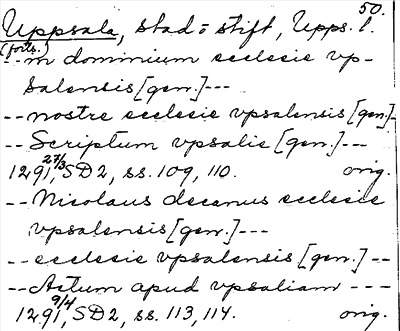 50.
Uppsala, stad o stift, Upps. l.
(forts.)
--m dominium ecclesie vp-
salensis [gen.]---
--nostre ecclesie vpsalensis [gen.]-
--Scriptum vpsalie [gen.]---
1291 27/3, SD2, ss. 109, 110. orig.
--Nicolaus decanus ecclesie
vpsalensis [gen.]---
--ecclesie vpsalensis [gen.]--
--Actum apud vpsaliam ---
1291 9/4, SD2, ss. 113, 114. orig.